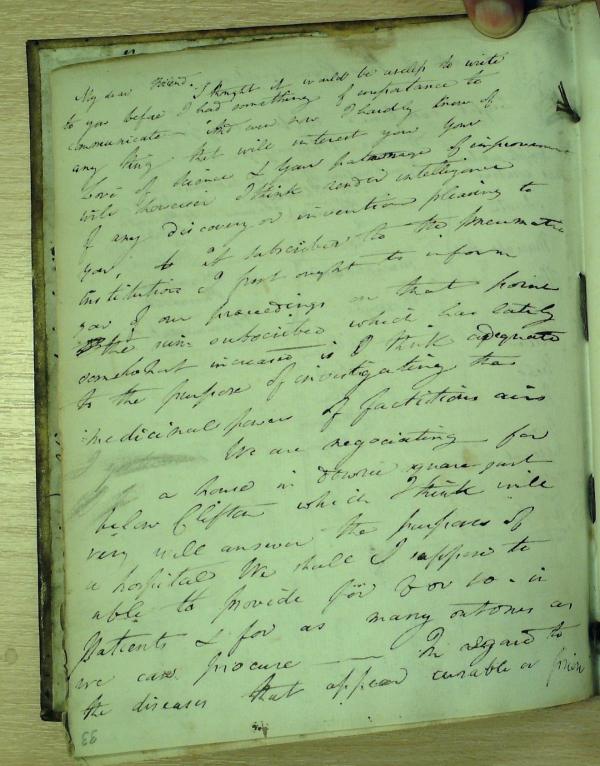 My dear Friend. I thought it would be useless to write
to you before I had something of importance to
communicate - And even now I hardly know of
any thing that will interest you your
Love of Science & your patronage of improvement
will however I think render intelligence
of any discovery or invention pleasing to
you, As a subscriber to the Pneumatic
institution I first ought to inform
you of our proceedings on that point
the sum subscribed which has lately
somewhat increased is I think adequate
to the purpose of investigating the
medicinal powers of factitious airs
We are negociating for
a house in Dowrie square just
below Clifton which I think will
very well answer the purposes of
a hospital We shall I suppose be
able to provide for 8 or 10 - in
patients & for as many outones as
we can procure — In regard to
the diseases that appear curable a priori
33